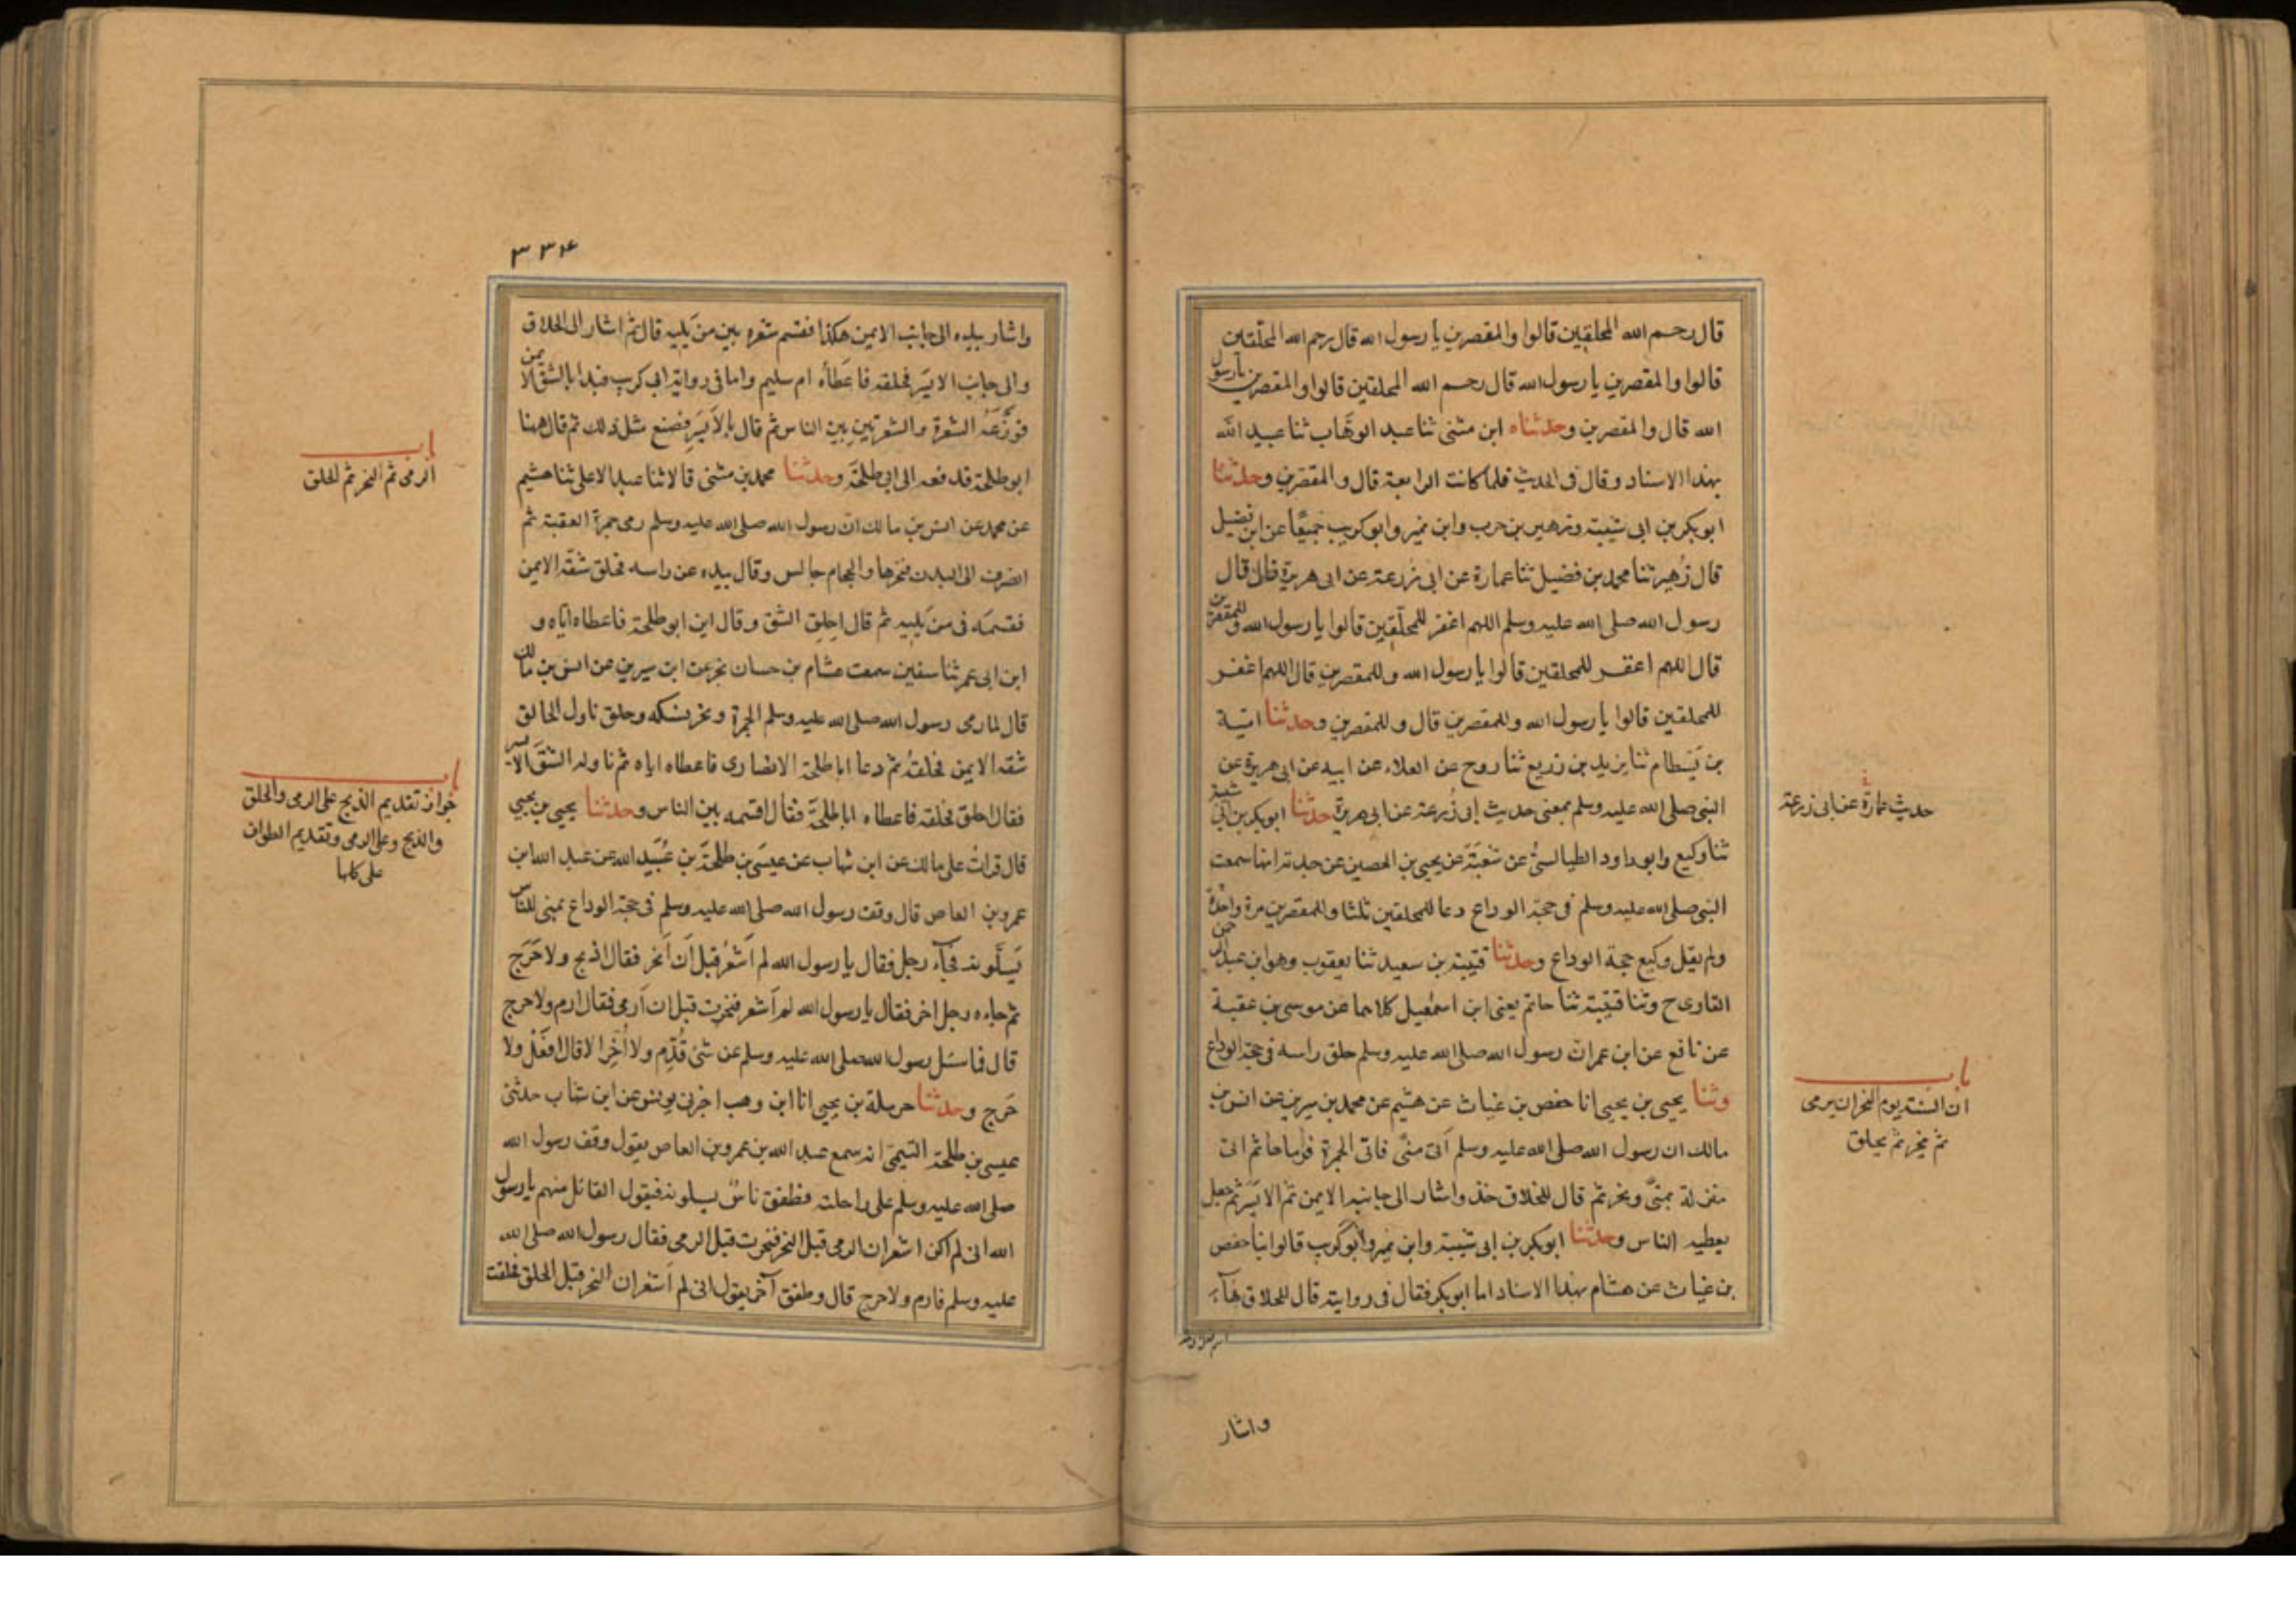 قال رحم الله المحلقين قالوا والمقصرين يا رسول الله قال رحم الله المحلقين
قالوا والمقصرين يا رسول الله قال رحم الله المحلقين قالوا والمقصرين يا رسول
الله قال والمقصرين وحدثناه ابن مثنى ثنا عبد الوهاب ثنا عبيد الله
بهذا الاسناد وقال فى الحديث فلما كانت الرابعة قال والمقصرين وحدثنا
ابو بكر بن ابى شيبة وزهير بن حرب وابن نمير وابو كريب جميعًا عن ابن فضيل
قال زُهير ثنا محمد بن فضيل ثنا عمارة عن ابى زرعة عن ابى هريرة قال قال
رسول الله صلى الله عليه وسلم اللهم اغفر للمحلّقين قالوا يا رسول الله وللمقصرين
قال اللهم اغفر للمحلقين قالوا يا رسول الله وللمقصرين قال اللهم اغفر
للمحلقين قالوا يا رسول الله وللمقصرين قال وللمقصرين وحدثنا امية
بن بَسْطام ثنا يزيد بن زريع ثنا روح عن العلاء عن ابيه عن ابى هريرة عن
النبى صلى الله عليه وسلم بمعنى حديث ابى زُرعة عن ابى هريرة حدثنا ابو بكر بن ابى شيبة
ثنا وكيع وابو داود الطيالسىُّ عن شعبَةَ عن يحيى بن الحصين عن جدته انها سمعت
النبى صلى الله عليه وسلم فى حجة الوداع دعا للمحلقين ثلثا وللمقصرين مرة واحدة
ولم يقل وكيع حجة الوداع وحدثنا قتيبة بن سعيد ثنا يعقوب وهو ابن عبد الرحمن
القارى ح وثنا قتيبة ثنا حاتم يعنى ابن اسمعيل كلاهما عن موسى بن عقبة
عن نافع عن ابن عمر ان رسول الله صلى الله عليه وسلم حلق راسه فى حجة الوداع
وثنا يحيى بن يحيى انا حفص بن غياث عن هشيم عن محمد بن سيرين عن انس بن
مالك ان رسول الله صلى الله عليه وسلم اَتى منًى فاتى الجمرة فرماها ثم اتى
منزلة بمنًى ونحر ثم قال للخلاق خذ واشار الى جانبه الايمن ثم الايسَر ثم جعل
يعطيه الناس وحدثنا ابو بكر بن ابى شيبة وابن نمير وابو كريب قالوا ثنا حفص
بن غياث عن هشام بهذا الاسناد اما ابو بكر فقال فى روايته قال للحلاق هآء
واشار
حديث عمارة عن ابى زرعة
باب
ان السنة يوم النحر ان يرمى
ثم ينحر ثم يحلق
٣٣٤
واشار بيده الى جانب الايمن هكذا فقسم شعره بين من يليه قال ثم اشار الى الحلاق
والى جانب الايسَر فحلقه فاعطاُه ام سليم واما فى رواية ابى كريب فبدا بالشق الايمن
فوزَّعَه الشعرة والشعرتين بين الناس ثم قال بالاَيسَر فصنع مثل ذلك ثم قال ههنا
ابو طلحة فدفعه الى ابى طلحَة وحدثنا محمد بن مثنى قالا ثنا عبد الاعلى ثنا هشيم
عن محمد عن انس بن مالك ان رسول الله صلى الله عليه وسلم رمى جمرة العقبة ثم
انصرف الى البدن فنحرها والحجام جالس وقال بيده عن راسه فحلق شقه الايمن
فقسمَه فى من يَليه ثم قال احلِق الشق وقال اين ابو طلحة فاعطاه اياه و
ابن ابى عمر ثنا سفين سمعت هشام بن حسان يخبر عن ابن سيرين عن انس بن مالك
قال لما رمى رسول الله صلى الله عليه وسلم الجمرة ونحر نسكه وحلق ناول الحالق
شقه الايمن فحلقُه ثم دعا ابا طلحة الانصارى فاعطاه اياه ثم ناوله الشقَ الايسر
فقال احلق فحلقه فاعطاه ابا طلحَة فقال اقسمه بين الناس وحدثنا يحيى بن يحيى
قال قراتُ على مالك عن ابن شهاب عن عيسَى بن طلحَة بن عُبَيد الله عن عبد الله ابن
عمرو بن العاص قال وقف رسول الله صلى الله عليه وسلم فى حجة الوداع بمنى للناس
يَسئَلونه فجآء رجل فقال يا رسول الله لم اَشعُر قبل اَن اَنحر فقال اذبح ولا حَرَج
ثم جاءه رجل اخر فقال يا رسول الله لم اَشعر فنحرت قبل ان اَرمى فقال ارم ولا حرج
قال فما سئل رسول الله صلى الله عليه وسلم عن شئ قُدِّم ولا اُخِّر الا قال افعَلْ ولا
حَرج وحدثنا حرملة بن يحيى انا ابن وهب اخبرنى يونس عن ابن شهاب حدثنى
عيسى بن طلحة التيمى انه سمع عبد الله بن عمرو بن العاص يقول وقف رسول الله
صلى الله عليه وسلم على راحلته فطفق ناسٌ يسلونه فيقول القائل منهم يا رسول
الله انى لم اكن اشعر ان الرمى قبل النحر فنحرت قبل الرمى فقال رسول الله صلى الله
عليه وسلم فارم ولا حرج قال وطفق آخر يقول انى لم اَشعر ان النحر قبل الحلق فحلقت
باب
الرمى ثم النحر ثم الحلق
باب
جواز تقديم الذبح على الرمى والحلق
والذبح وعلى الرمى وتقديم الطواف
على كلها